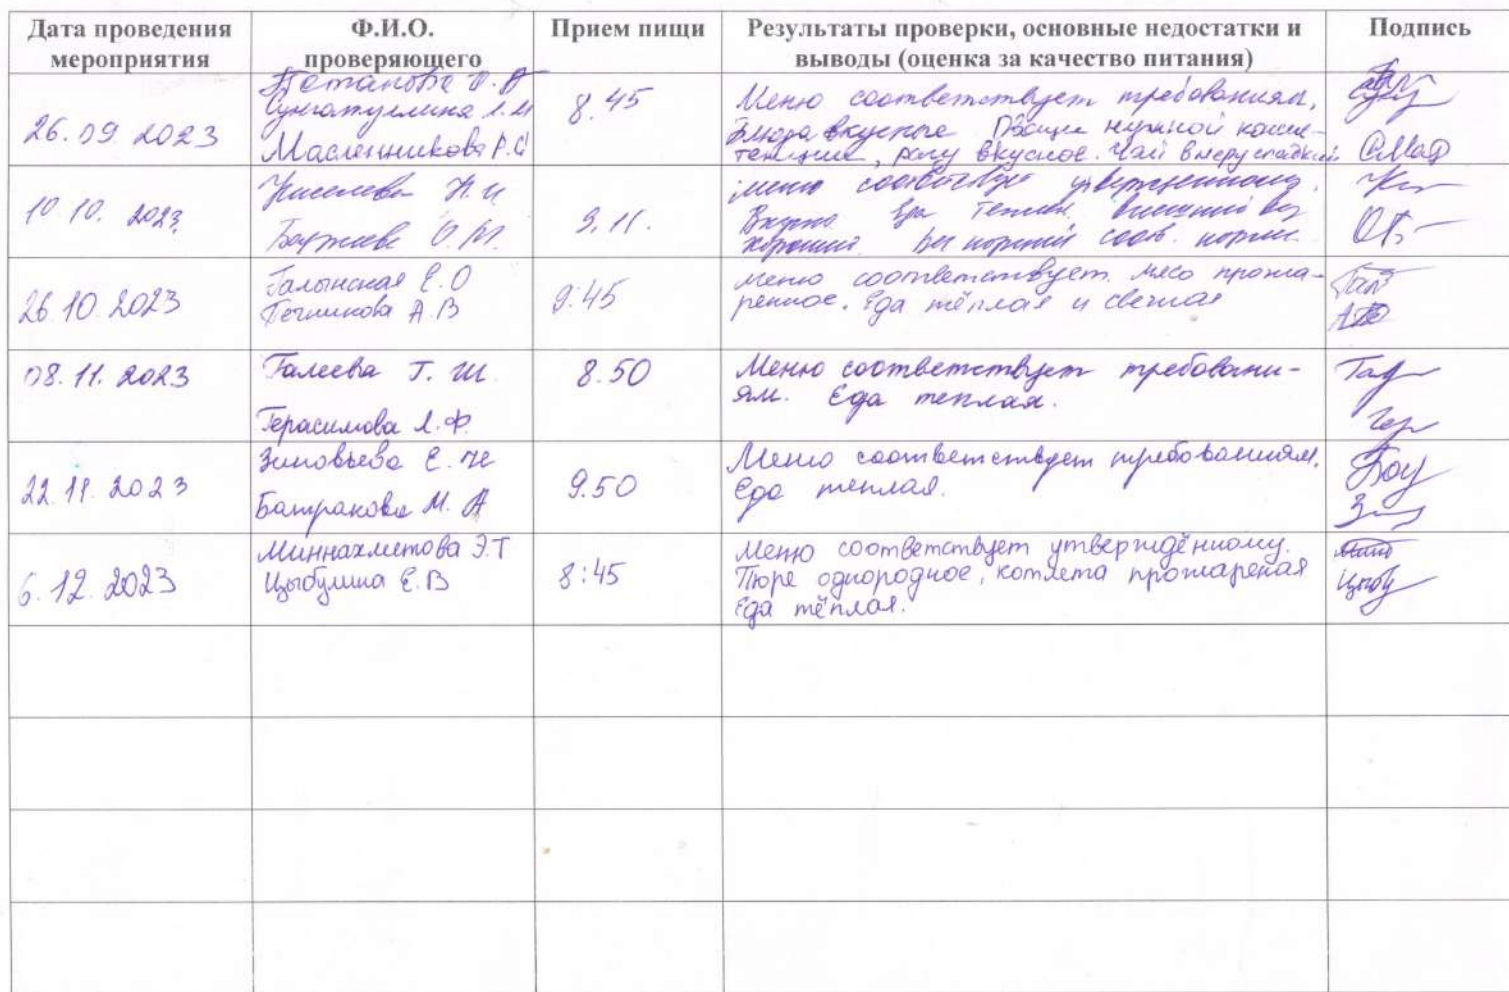 Дата проведения мероприятия
Ф.И.О. проверяющего
Прием пищи
Результаты проверки, основные недостатки и выводы (оценка за качество питания)
Подпись
26.09 2023
Потанова
Сунгатуллина Л.М
Масленникова Р.С
8.45
Меню соответствует требованиям,
блюда вкусные Овощи нужной консис-
тенции, рагу вкусное. Чай в меру сладкий
10.10. 2023
Киселева Н.И
О.М.
9.11.
меню соответствует утвержденному.
Вкусно Еда теплая. внешний вид
хороший. Вес порций соотв. норме.
26.10.2023
Галынская Е.О
Печникова А.В
9:45
Меню соответствует. мясо прожа-
ренное. Еда тёплая и свежая
08.11.2023
Галеева Г. Ш.
Герасимова Л.Ф.
8.50
Меню соответствует требовани-
ям. Еда теплая.
22.11.2023
Зиновьева Е.
Батракова М. А
9.50
Меню соответствует требованиям.
Еда теплая.
6.12.2023
Миннахметова Э.Т
Цыбулина Е.В
8:45
Меню соответствует утверждённому.
Пюре однородное, котлета прожареная
Еда тёплая.